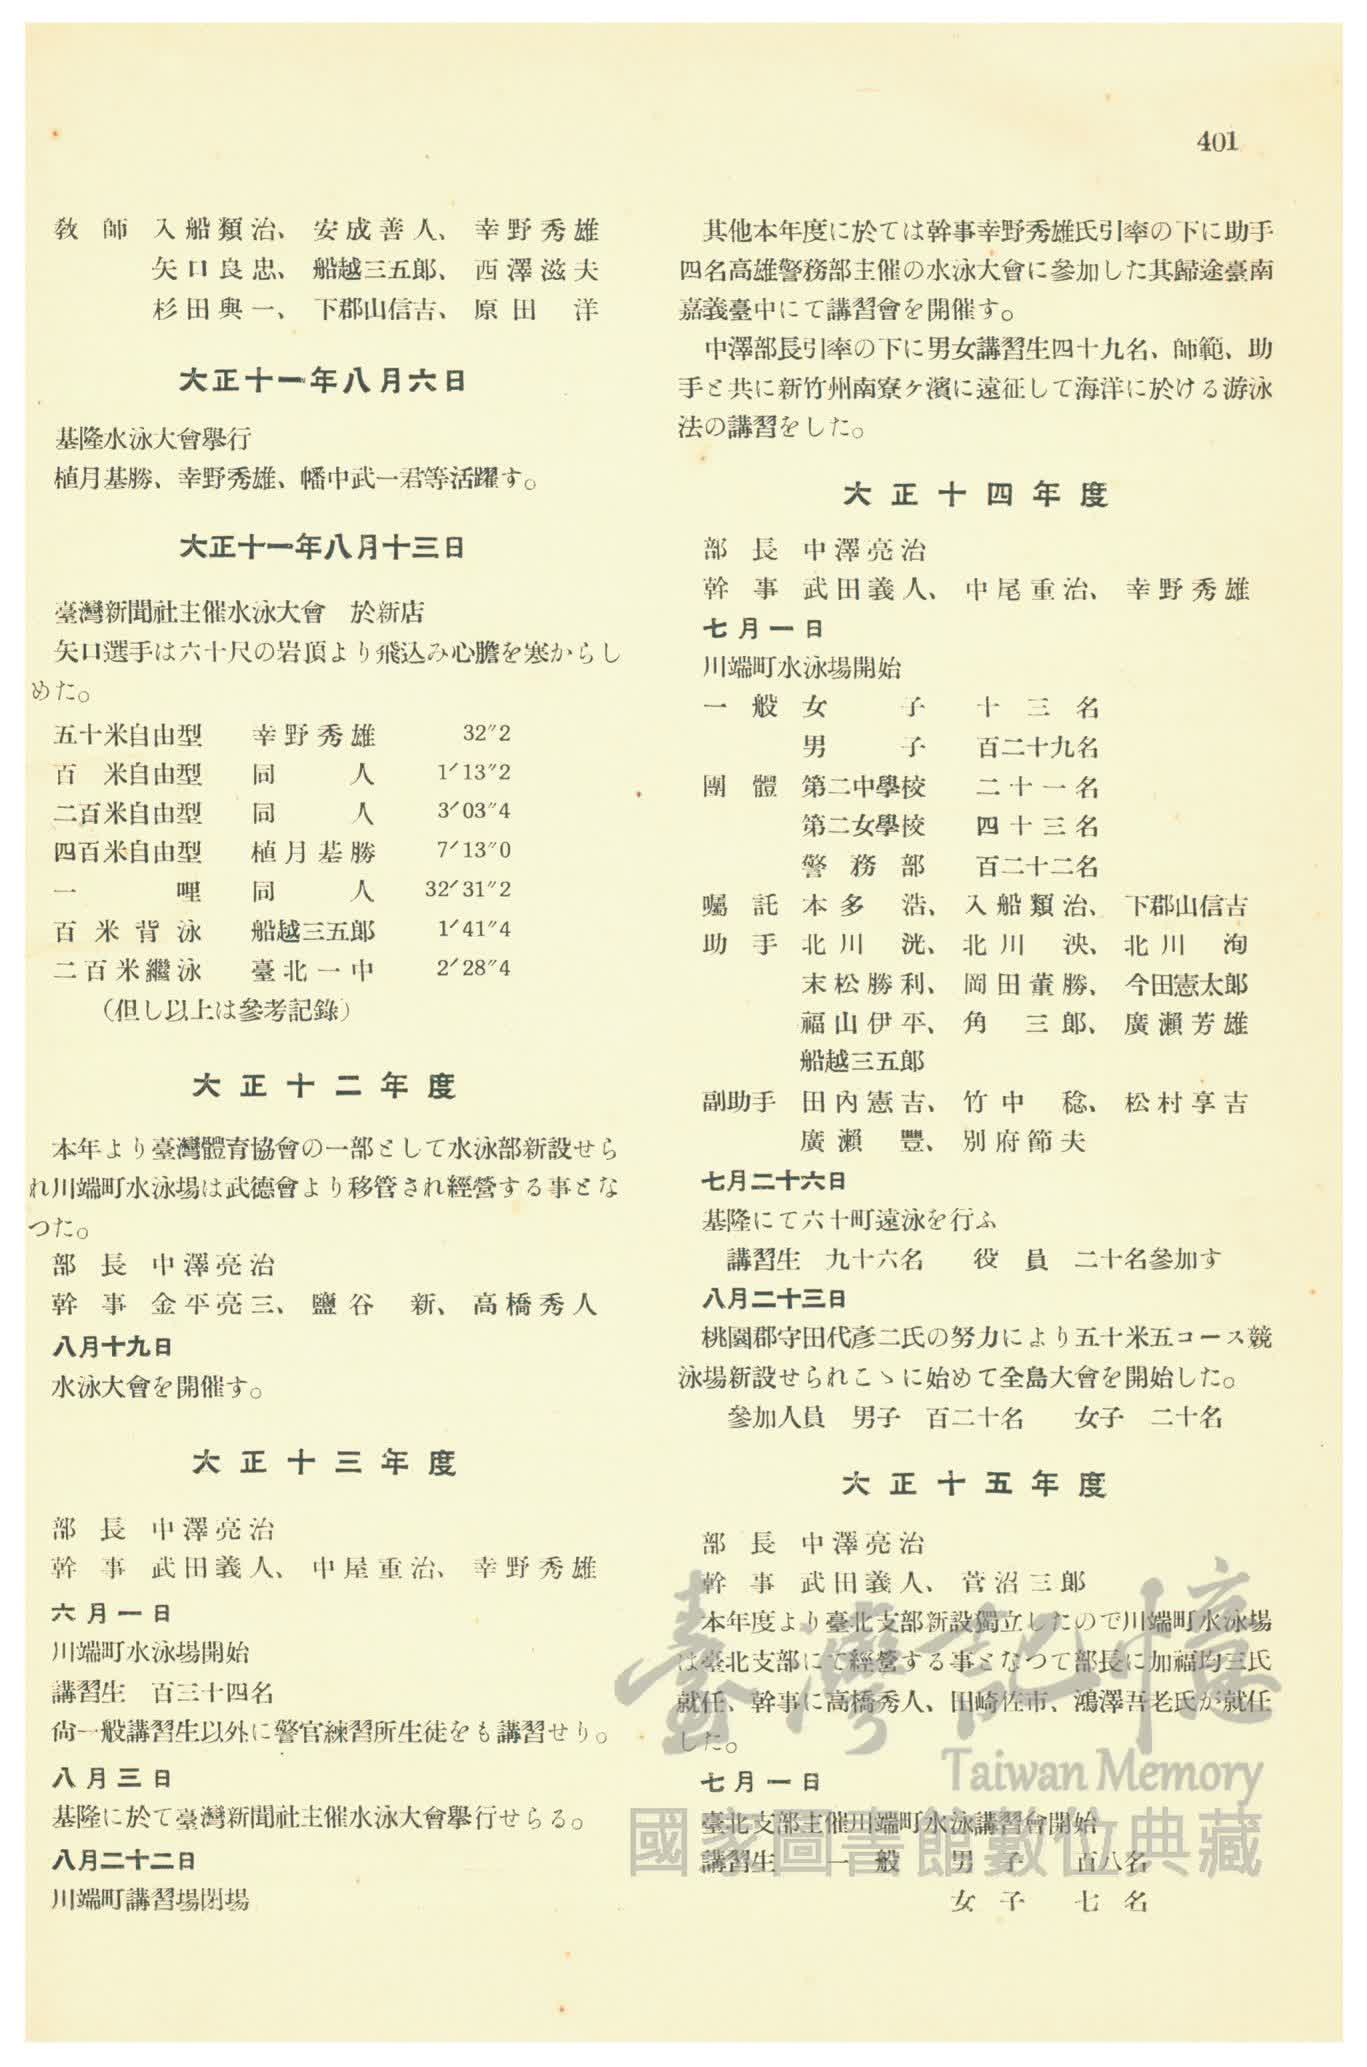 401
教師 入船類治、 安成善人、 幸野秀雄
矢口良忠、 船越三五郎、 西澤滋夫
杉田與一、 下郡山信吉、 原田 洋
大正十一年八月六日
基隆水泳大會擧行
植月基勝、幸野秀雄、幡中武一君等活躍す。
大正十一年八月十三日
臺灣新聞社主催水泳大會 於新店
矢口選手は六十尺の岩頂より飛込み心膽を寒からし
めた。
五十米自由型 幸野秀雄 32″2
百 米自由型 同 人 1′13″2
二百米自由型 同 人 3′03″4
四百米自由型 植月基勝 7′13″0
一 哩 同 人 32′31″2
百米背泳 船越三五郎 1′41″4
二百米繼泳 臺北一中 2′28″4
(但し以上は參考記錄)
大正十二年度
本年より臺灣體育協會の一部として水泳部新設せら
れ川端町水泳場は武德會より移管され經營する事とな
つた。
部長 中澤亮治
幹事 金平亮三、 鹽谷 新、 高橋秀人
八月十九日
水泳大會を開催す。
大正十三年度
部長 中澤亮治
幹事 武田義人、 中屋重治、 幸野秀雄
六月一日
川端町水泳場開始
講習生 百三十四名
尙一般講習生以外に警官練習所生徒をも講習せり。
八月三日
基隆に於て臺灣新聞社主催水泳大會擧行せらる。
八月二十二日
川端町講習場閉場
其他本年度に於ては幹事幸野秀雄氏引率の下に助手
四名高雄警務部主催の水泳大會に參加した其歸途臺南
嘉義臺中にて講習會を開催す。
中澤部長引率の下に男女講習生四十九名、師範、助
手と共に新竹州南寮ケ濱に遠征して海洋に於ける游泳
法の講習をした。
大正十四年度
部長 中澤亮治
幹事 武田義人、 中尾重治、 幸野秀雄
七月一日
川端町水泳場開始
一般 女子 十三名
男子 百二十九名
團體 第二中學校 二十一名
第二女學校 四十三名
警務部 百二十二名
囑託 本多 浩、 入船類治、 下郡山信吉
助手 北川 洸、 北川 泱、 北川 洵
末松勝利、 岡田董勝、 今田憲太郎
福山伊平、 角 三郎、 廣瀨芳雄
船越三五郎
副助手 田內憲吉、 竹中 稔、 松村享吉
廣瀨 豐、 別府節夫
七月二十六日
基隆にて六十町遠泳を行ふ
講習生 九十六名 役員 二十名參加す
八月二十三日
桃園郡守田代彥二氏の努力により五十米五コース競
泳場新設せられこゝに始めて全島大會を開始した。
參加人員 男子 百二十名 女子 二十名
大正十五年度
部長 中澤亮治
幹事 武田義人、 菅沼三郎
本年度より臺北支部新設獨立したので川端町水泳場
は臺北支部にて經營する事となつて部長に加福均三氏
就任、幹事に高橋秀人、田崎佐市、鴻澤吾老氏が就任
した。
七月一日
臺北支部主催川端町水泳講習會開始
講習生 一般 男子 百八名
女子 七名
臺灣記憶
Taiwan Memory
國家圖書館數位典藏